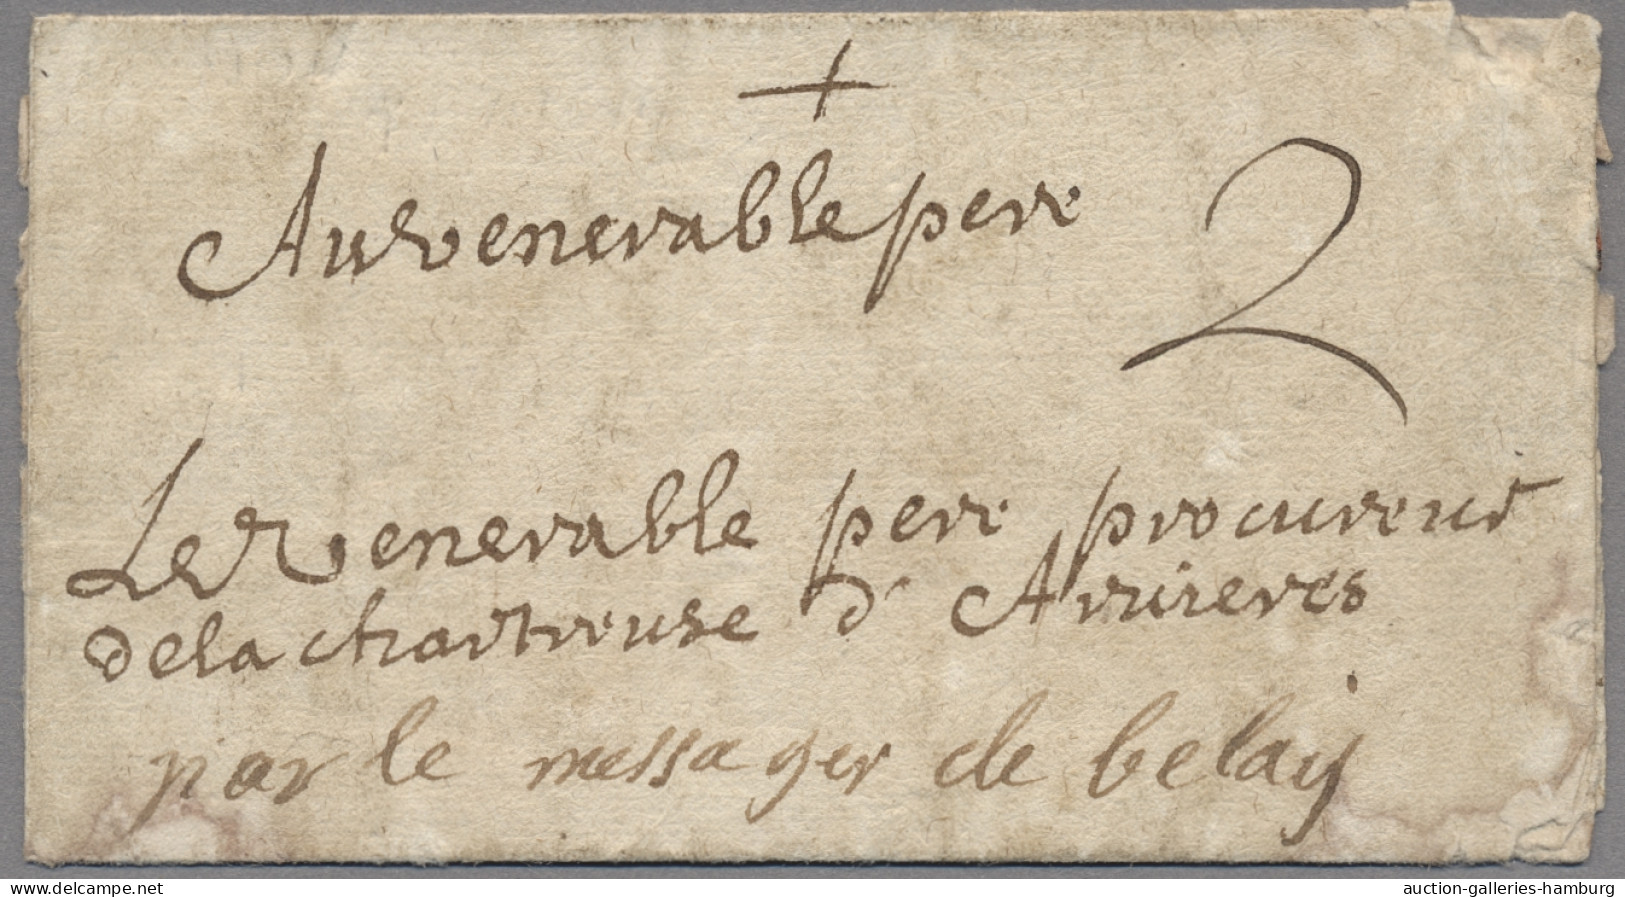 +
Au venerable pere
2
Le venerable pere procureur
de la chartreuse d' Arrieres
par le messager de belay
www.delcampe.net
auction-galleries-hamburg